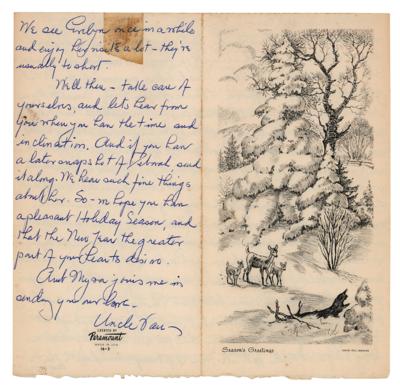 We see Evelyn once in a while
and enjoy her visits a lot - they're
usually to short.
Well then - take care of
yourselves, and lets hear from
you when you han the time and
inclination. And if you han
a later snapshot of send
it along. We hear such fine things
about her. So - we hope you han
a pleasant Holiday Season, and
that the New Year the greater
part of your hearts desire.
Aunt Myra joins me in
sending you our love.
Uncle Dan
CREATED BY
Paramount
MADE IN USA
Season's Greetings